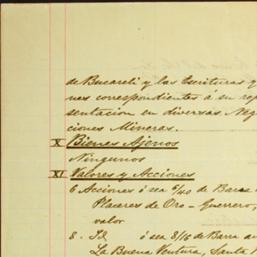 de Bucareli y las Escrituras q
nes correspondientes á su rep
sentacion en diversas Neg
ciones Mineras.
X Bienes Ajenos
Ningunos
XI Valores y Acciones
6 Acciones ó sea 6/40 de Barra
Placeres de Oro - Guerrero,
valor
8 - Id ó sea 8/15 de Barra
La Buena Ventura, Santa